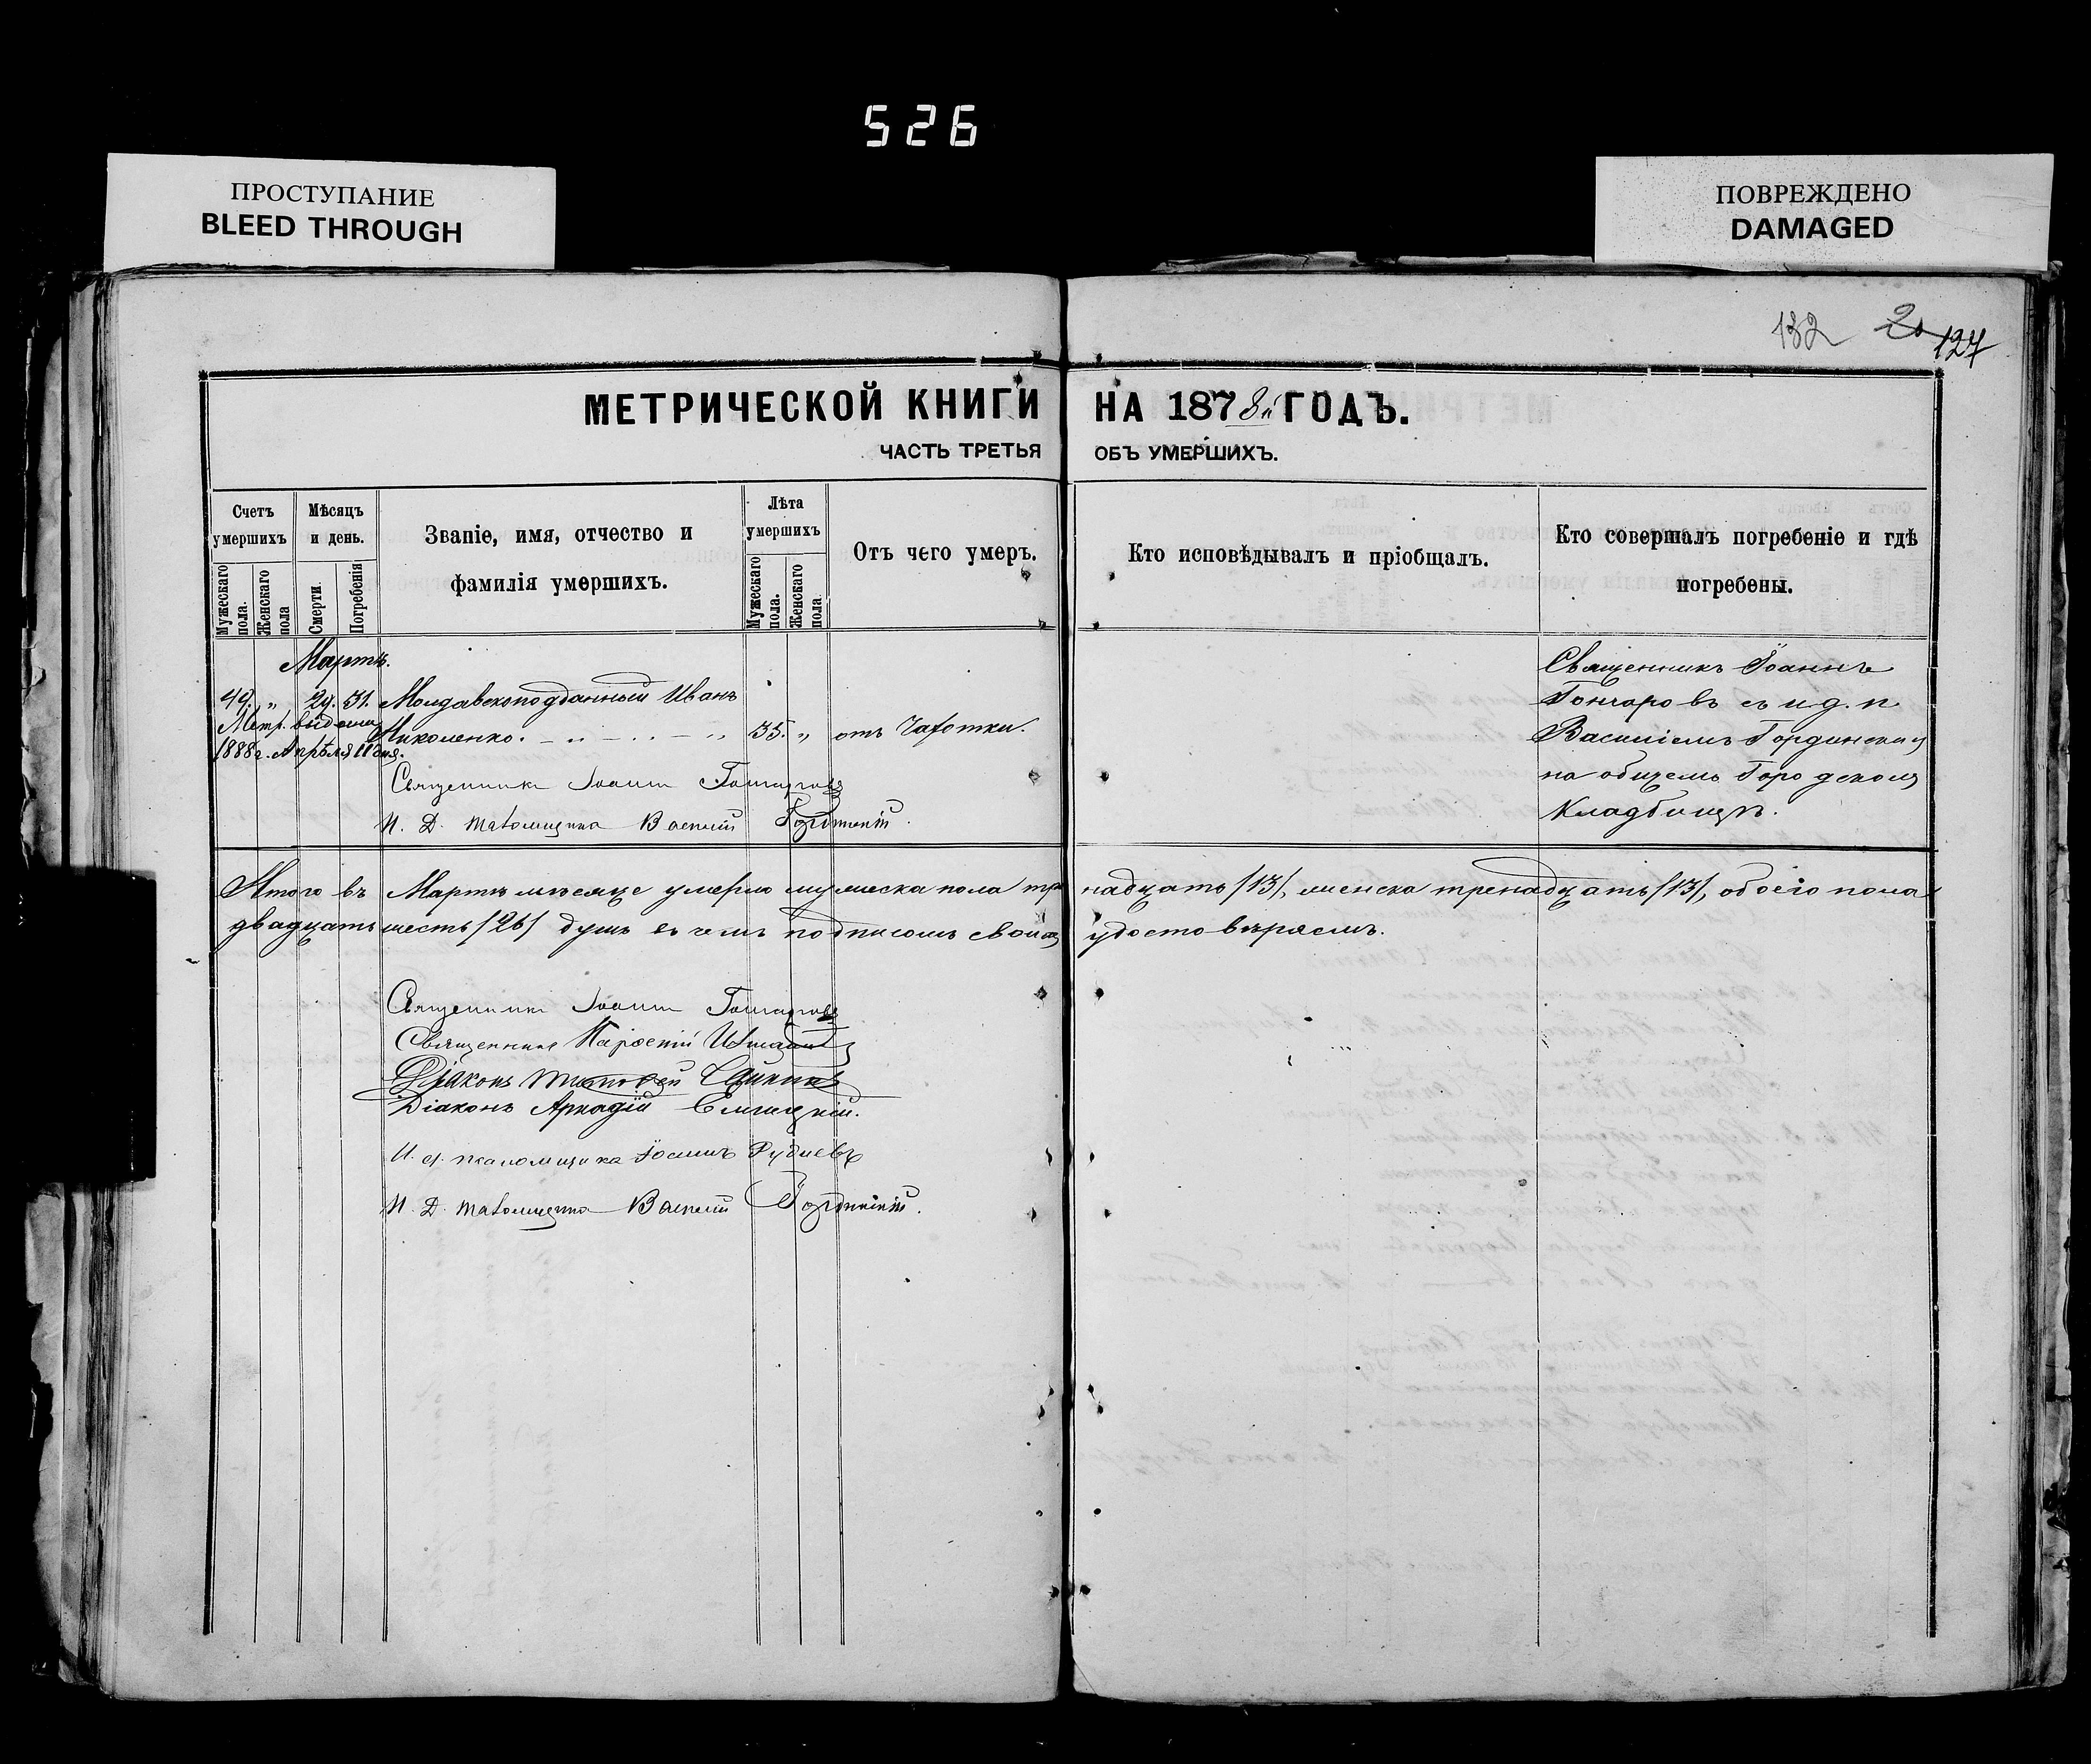 526
ПРОСТУПАНИЕ
BLEED THROUGH
ПОВРЕЖДЕНО
DAMAGED
132 127
МЕТРИЧЕСКОЙ КНИГИ НА 1878й ГОДЪ.
ЧАСТЬ ТРЕТЬЯ ОБЪ УМЕРШИХЪ.
Счетъ умершихъ
Мужескаго пола.
Женскаго пола
Мѣсяцъ и день.
Смерти.
Погребенія
Званіе, имя, отчество и
фамилія умершихъ.
Лѣта умершихъ
Мужескаго пола.
Женскаго пола
Отъ чего умеръ.
Кто исповѣдывалъ и пріобщалъ.
Кто совершалъ погребеніе и гдѣ
погребены.
Мартъ.
49. „ 29. 31. Молдавскоподданный Иванъ
Николенко. 35. „ отъ Чахотки.
Метр. выдана
1888 г. Апрѣля 11 дня.
Священникъ Іоаннъ
Гончаровъ съ и. д. п.
Василіемъ Гординскимъ
на общемъ Городскомъ
Кладбищѣ.
Священникъ Іоаннъ Гончаровъ
И. Д. Псаломщика Василій Гординскій.
Итого въ Мартѣ мѣсяцѣ умерло мужеска пола тринадцать /13/, женска тринадцать /13/, обоего пола
двадцать шесть /26/ душъ въ чемъ подписомъ своимъ удостовѣряемъ.
Священникъ Іоаннъ Гончаровъ
Священникъ
Діаконъ
Діаконъ Аркадій
И. д. псаломщика Іоаннъ Рудиевъ
И. Д. Псаломщика Василій Гординскій.